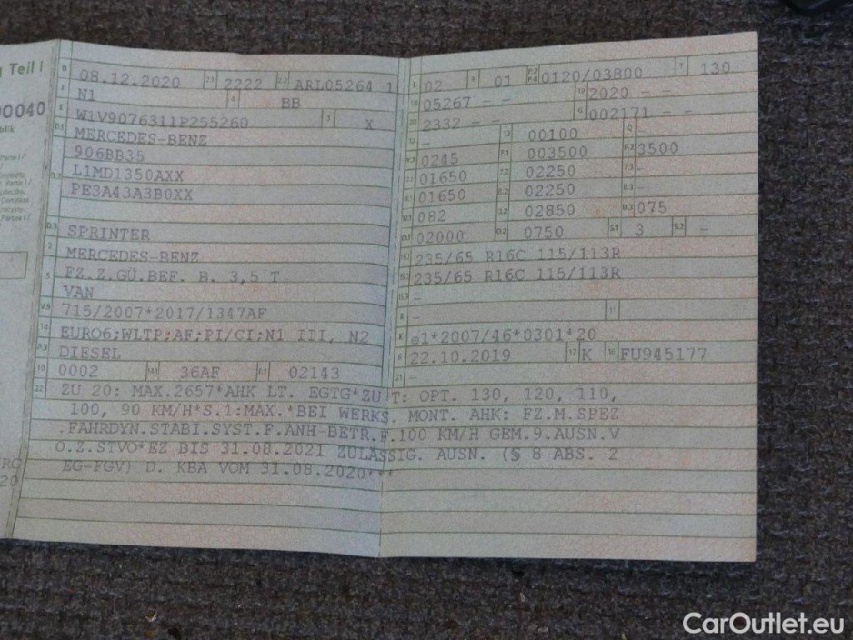 Teil I
B 08.12.2020 2.1 2222 2.2 ARL05264 1
J N1 4 BB
E W1V9076311P255260 3 X
D.1 MERCEDES-BENZ
906BB35
D.2 L1MD1350AXX
PE3A43A3B0XX
D.3 SPRINTER
2 MERCEDES-BENZ
5 FZ.Z.GÜ.BEF. B. 3,5 T
VAN
V.9 715/2007*2017/1347AF
14 EURO6;WLTP;AF;PI/CI;N1 III, N2
P.3 DIESEL
10 0002 14.1 36AF P.1 02143
L 02 9 01 P.2 P.4 0120/03800 T 130
18 05267 – – 19 2020 – –
20 2332 – – G 002171 – –
12 – 13 00100 Q –
V.7 0245 F.1 003500 F.2 3500
7.1 01650 7.2 02250 7.3 –
8.1 01650 8.2 02250 8.3 –
U.1 082 U.2 02850 U.3 075
O.1 02000 O.2 0750 S.1 3 S.2 –
15.1 235/65 R16C 115/113R
15.2 235/65 R16C 115/113R
15.3 –
R – 11
K e1*2007/46*0301*20
6 22.10.2019 17 K 16 FU945177
21 –
22 ZU 20: MAX.2657*AHK LT. EGTG*ZU T: OPT. 130, 120, 110,
100, 90 KM/H*S.1:MAX.*BEI WERKS. MONT. AHK: FZ.M.SPEZ
.FAHRDYN.STABI.SYST.F.ANH-BETR.F.100 KM/H GEM.9.AUSN.V
O.Z.STVO*EZ BIS 31.08.2021 ZULÄSSIG. AUSN. (§ 8 ABS. 2
EG-FGV) D. KBA VOM 31.08.2020***
CarOutlet.eu